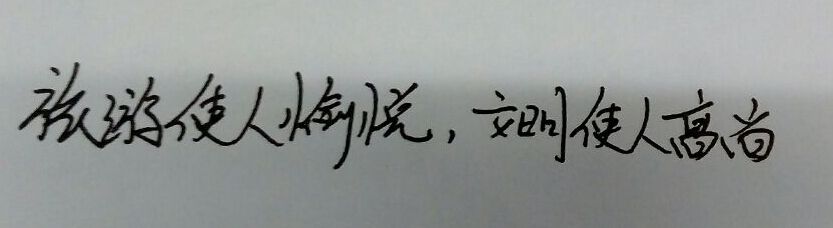 旅游使人愉悦，文明使人高尚